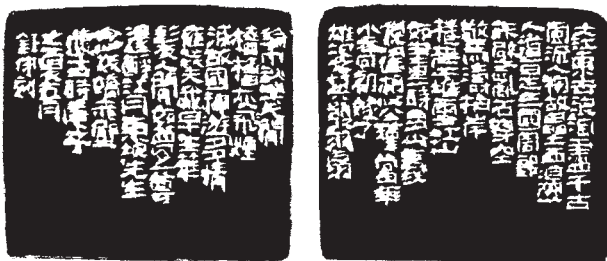 大江東去浪淘盡千古
風流人物故壘西邊
人道是三國周郎
赤壁亂石穿空
驚濤拍岸
捲起千堆雪江山
如畫一時多少豪傑
遙想公瑾當年
小喬初嫁了
雄姿英發羽扇
綸巾談笑間
檣櫓灰飛煙
滅故國神遊多情
應笑我早生華
髮人間如夢一尊
還酹江月東坡先生
念奴嬌赤壁